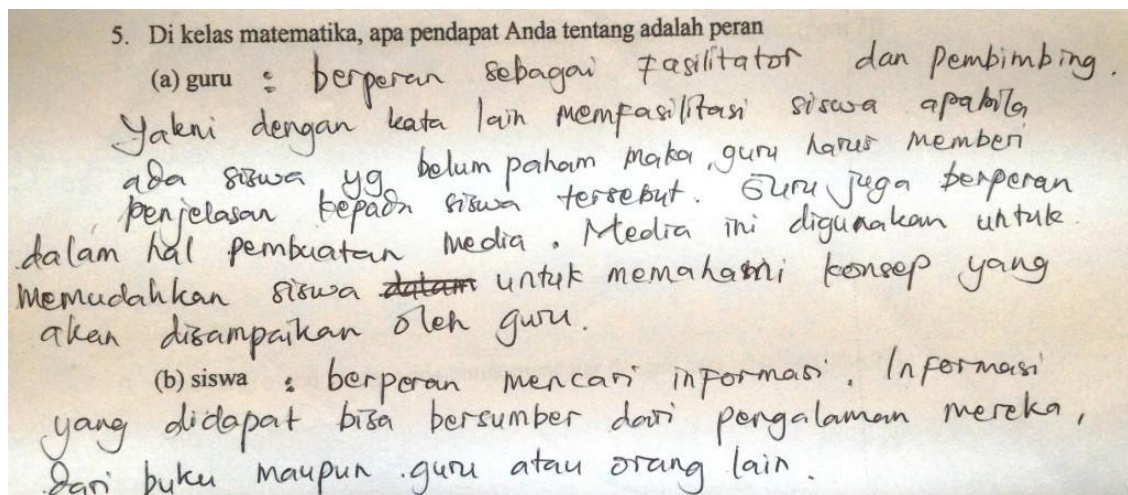 5. Di kelas matematika, apa pendapat Anda tentang adalah peran
(a) guru : berperan sebagai Fasilitator dan Pembimbing.
Yakni dengan kata lain memfasilitasi siswa apabila
ada siswa yg belum paham maka guru harus memberi
penjelasan kepada siswa tersebut. Guru juga berperan
dalam hal pembuatan media. Media ini digunakan untuk
memudahkan siswa dalam untuk memahami konsep yang
akan disampaikan oleh guru.
(b) siswa : berperan mencari informasi. Informasi
yang didapat bisa bersumber dari pengalaman mereka,
dari buku maupun guru atau orang lain.